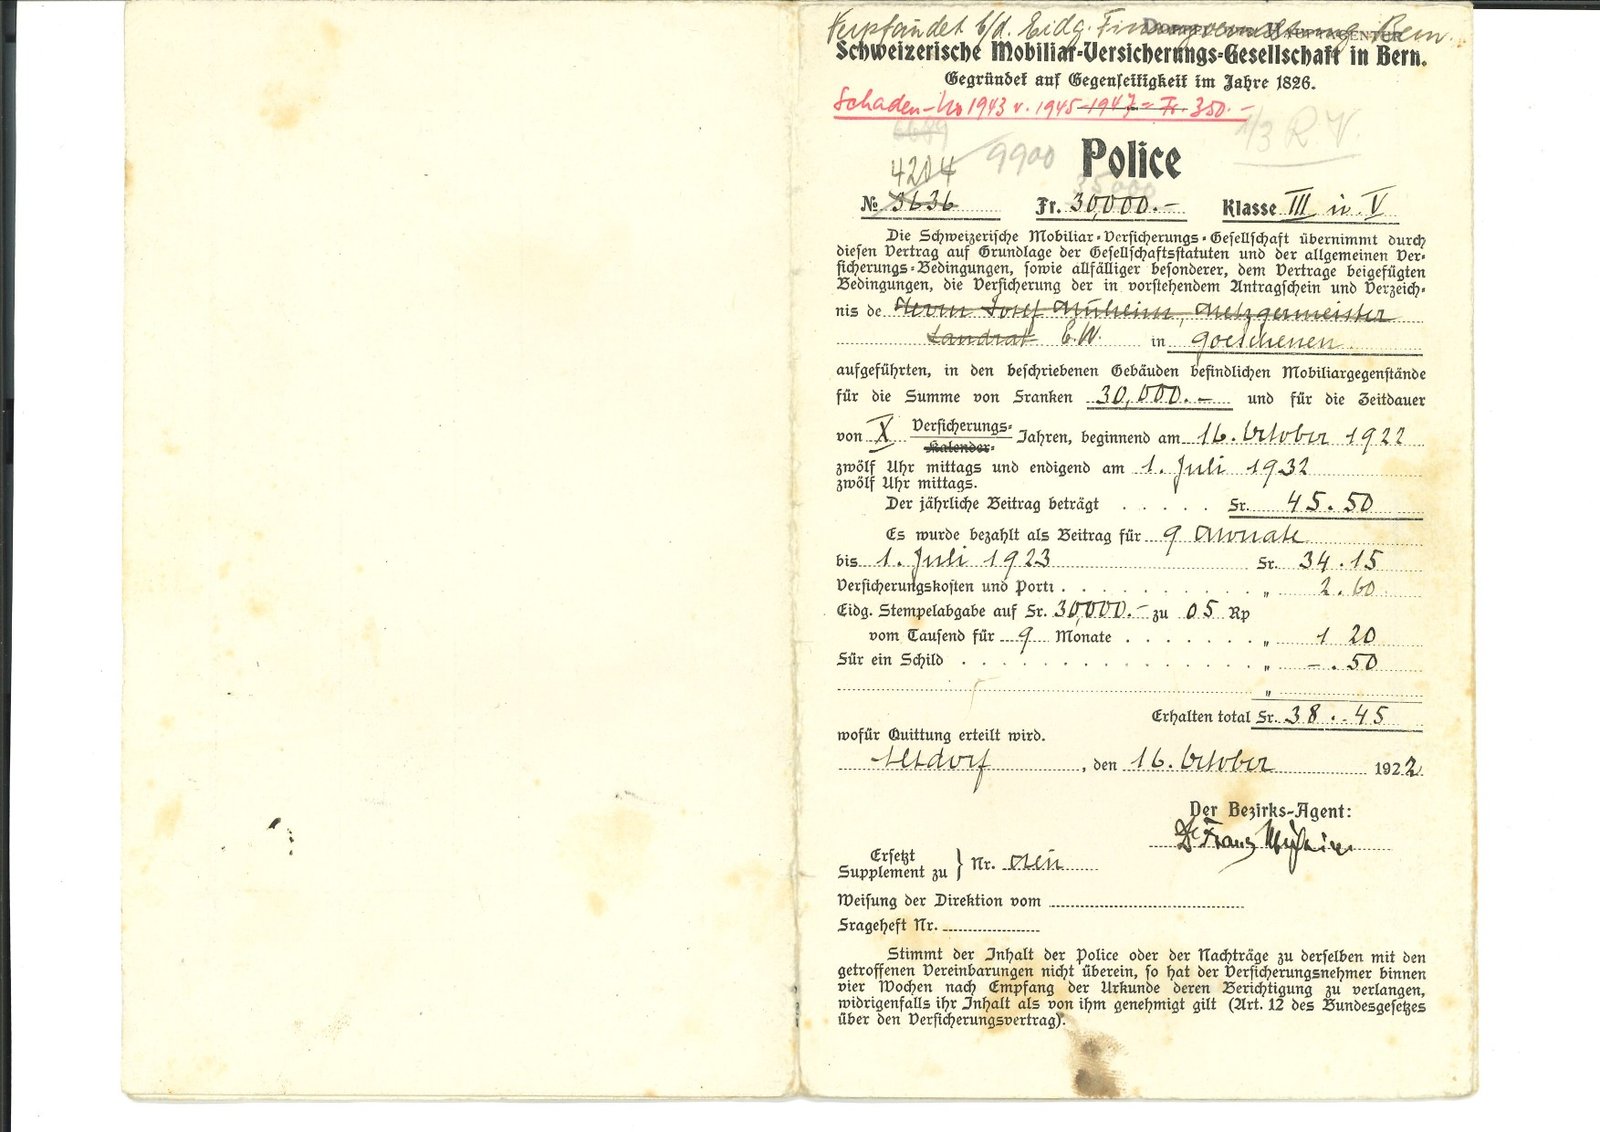 Verpfändet b/d. Eidg. Finanzverwaltung Bern.
Schweizerische Mobiliar-Versicherungs-Gesellschaft in Bern.
Gegründet auf Gegenseitigkeit im Jahre 1826.
Schaden-No 1943 v. 1945-1947 = Fr. 350.-
6689
1/3 R. V.
4204 9900 Police
35000
№ 3636 Fr. 30,000.- Klasse III u. V
Die Schweizerische Mobiliar-Versicherungs-Gesellschaft übernimmt durch
diesen Vertrag auf Grundlage der Gesellschaftsstatuten und der allgemeinen Ver-
sicherungs-Bedingungen, sowie allfälliger besonderer, dem Vertrage beigefügten
Bedingungen, die Versicherung der in vorstehendem Antragschein und Verzeich-
nis de Herrn Josef Müheim, Metzgermeister
Landrat E.W. in Goeschenen.
aufgeführten, in den beschriebenen Gebäuden befindlichen Mobiliargegenstände
für die Summe von Franken 30,000.- und für die Zeitdauer
von X Versicherungs- Kalender- Jahren, beginnend am 16. Oktober 1922
zwölf Uhr mittags und endigend am 1. Juli 1932
zwölf Uhr mittags.
Der jährliche Beitrag beträgt . . . . . Fr. 45.50
Es wurde bezahlt als Beitrag für 9 Monate
bis 1. Juli 1923 Fr. 34.15
Versicherungskosten und Porti . . . . . . . . . . . „ 2.60
Eidg. Stempelabgabe auf Fr. 30,000.- zu 05 Rp
vom Tausend für 9 Monate . . . . . . . „ 1 20
Für ein Schild . . . . . . . . . . . . . . . „ -.50
„
Erhalten total Fr. 38..45
wofür Quittung erteilt wird.
Altdorf, den 16. Oktober 1922
Der Bezirks-Agent:
Dr Franz
Ersetzt
Supplement zu } Nr. neu
Weisung der Direktion vom
Frageheft Nr.
Stimmt der Inhalt der Police oder der Nachträge zu derselben mit den
getroffenen Vereinbarungen nicht überein, so hat der Versicherungsnehmer binnen
vier Wochen nach Empfang der Urkunde deren Berichtigung zu verlangen,
widrigenfalls ihr Inhalt als von ihm genehmigt gilt (Art. 12 des Bundesgesetzes
über den Versicherungsvertrag).